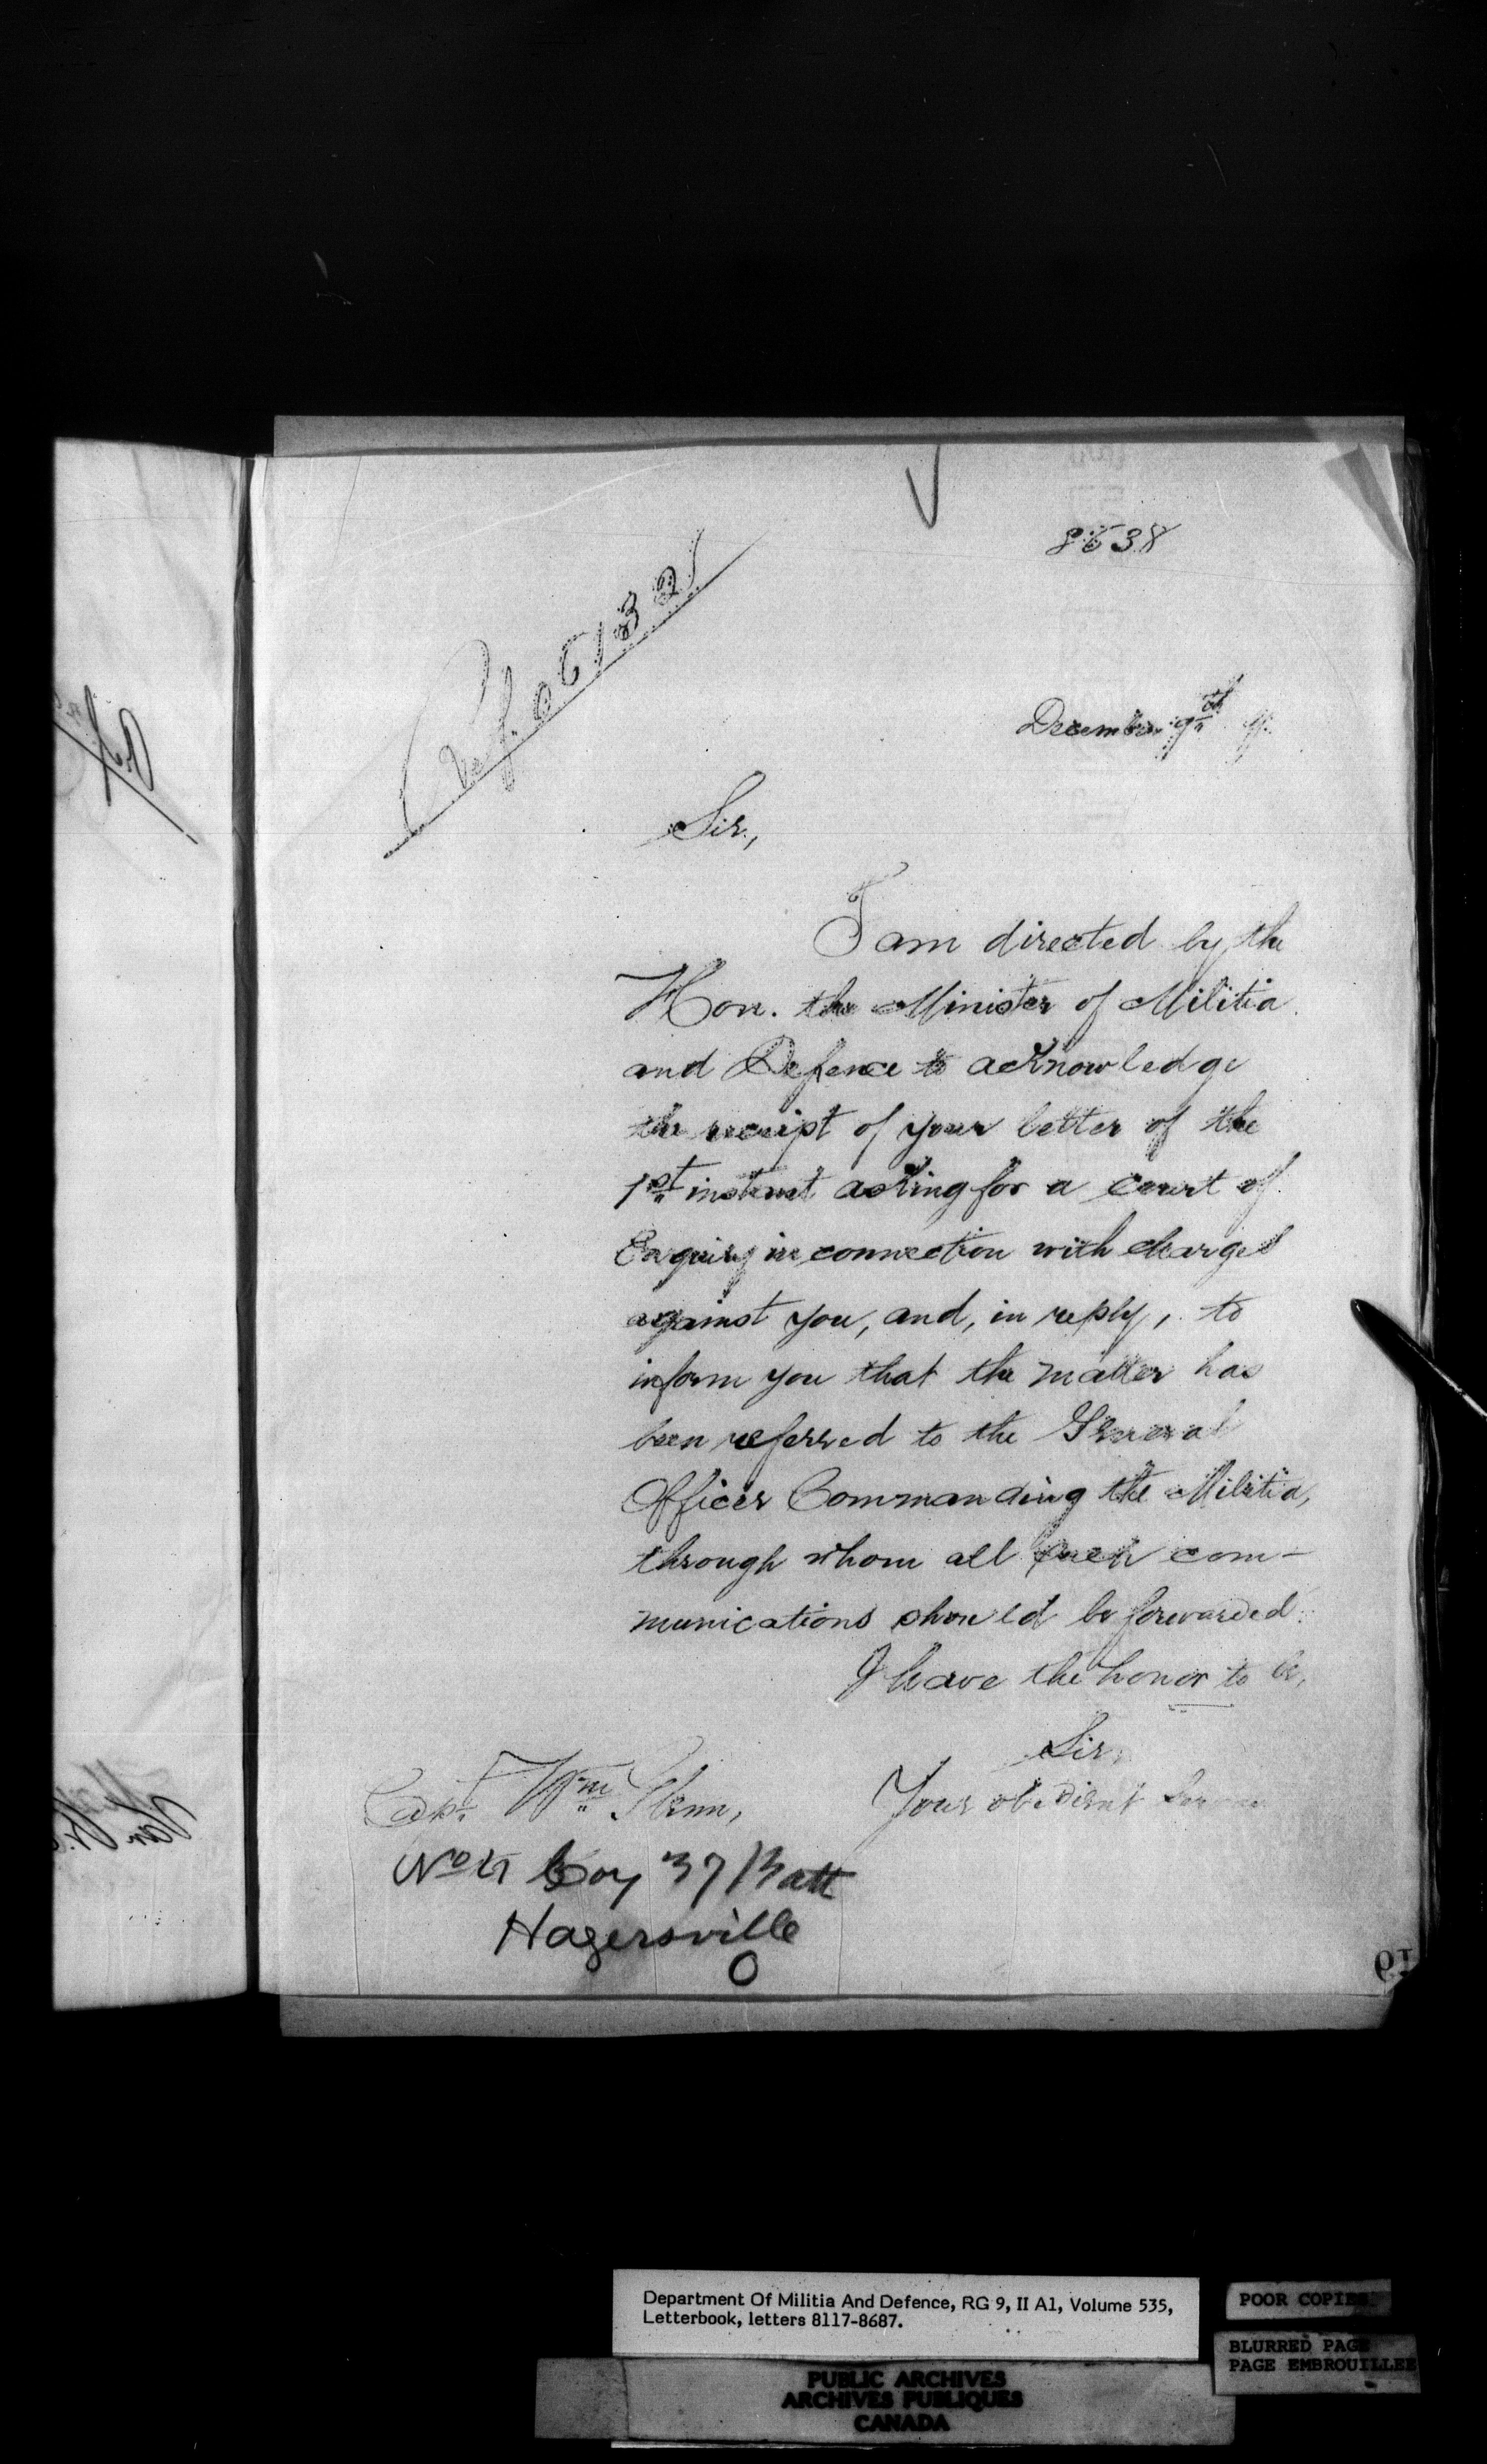 8638
Ref. 06132
December 9th 9
Sir,
I am directed by the
Hon. the Minister of Militia
and Defence to acknowledge
the receipt of your letter of the
1st instant asking for a court of
Enquiry in connection with charges
against you, and, in reply, to
inform you that the matter has
been referred to the General
Officer Commanding the Militia,
through whom all such com-
munications should be forwarded.
I have the honor to be,
Sir,
Your obedient Servan
Capt. Wm
No 4 Coy 37 Batt
Hagersville
O
Department Of Militia And Defence, RG 9, II A1, Volume 535,
Letterbook, letters 8117-8687.
POOR COPIES
BLURRED PAGE
PAGE EMBROUILLEE
PUBLIC ARCHIVES
ARCHIVES PUBLIQUES
CANADA